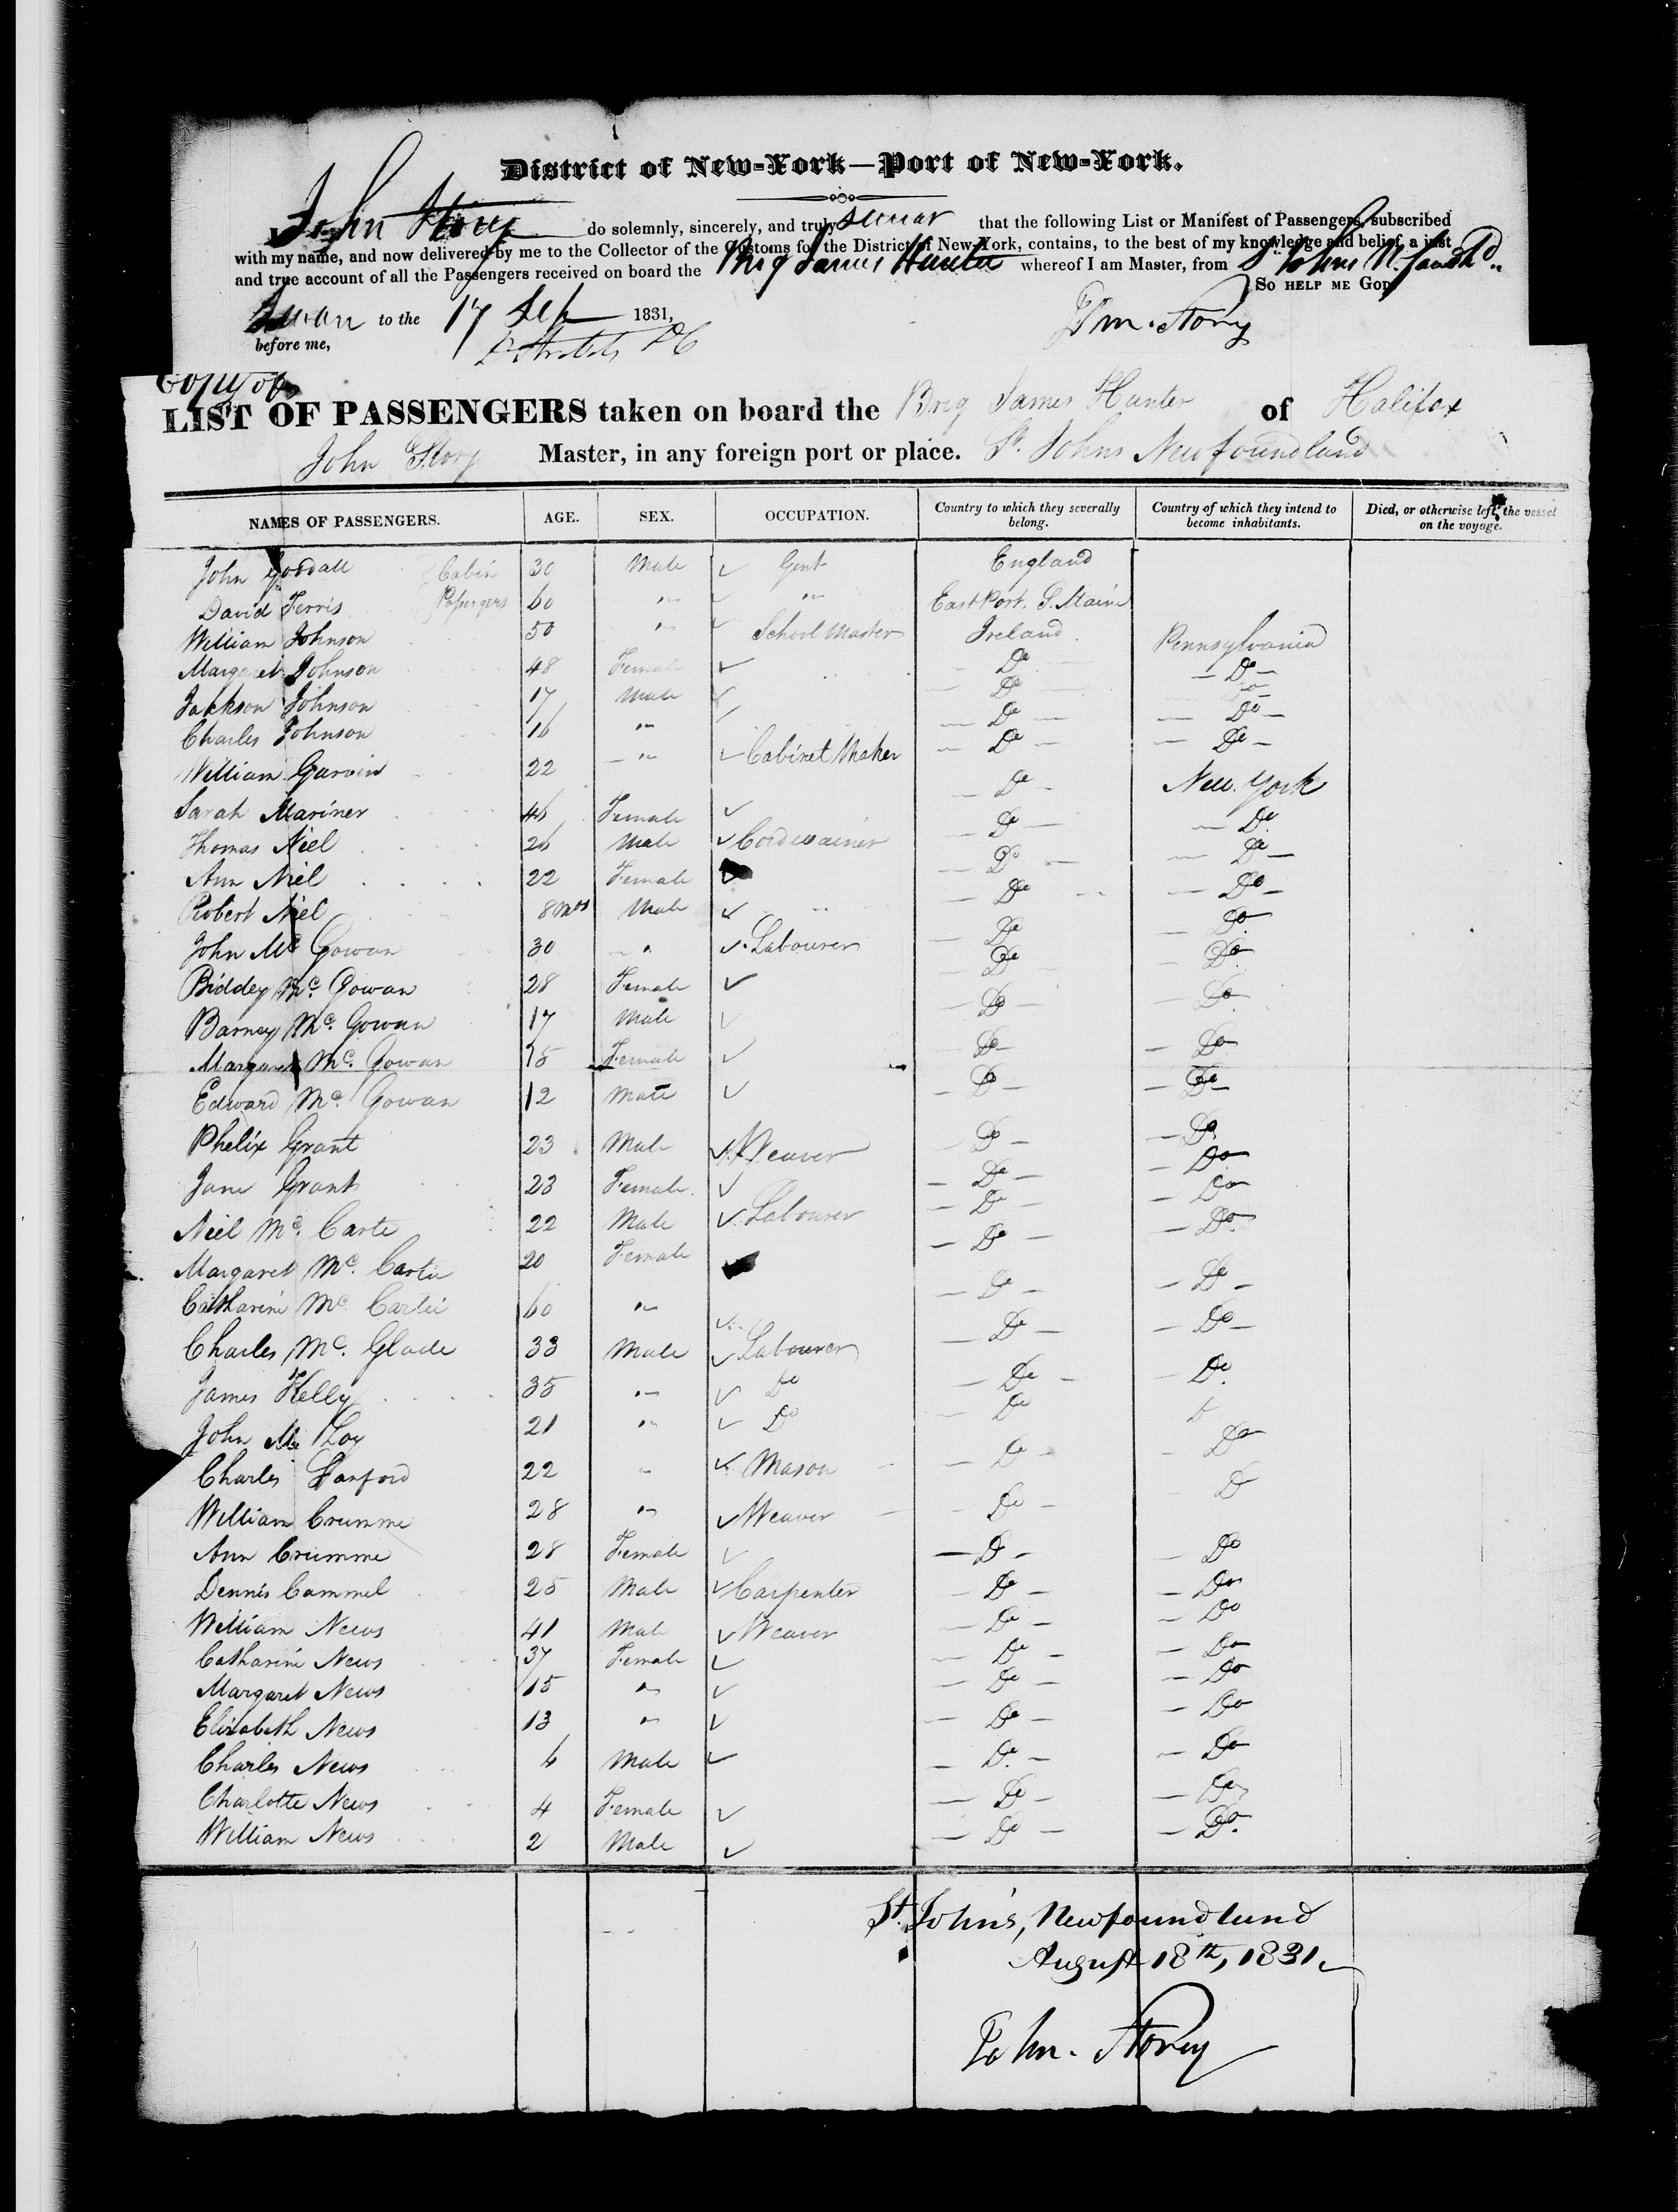 District of New-York—Port of New-York.
I, John Storey do solemnly, sincerely, and truly swear that the following List or Manifest of Passengers, subscribed
with my name, and now delivered by me to the Collector of the Customs for the District of New-York, contains, to the best of my knowledge and belief, a just
and true account of all the Passengers received on board the Brig James Hunter whereof I am Master, from St Johns N. foundld
So help me God
Sworn to the 17 Sep 1831,
before me,
Jn. Storey
Copy of
LIST OF PASSENGERS taken on board the Brig James Hunter of Halifax
John Story Master, in any foreign port or place. St. Johns Newfoundland
NAMES OF PASSENGERS. AGE. SEX. OCCUPATION. Country to which they severally belong. Country of which they intend to become inhabitants. Died, or otherwise left, the vessel on the voyage.
John Goodall Cabin 30 Male Gent England
David Ferris Passengers 60 " " East Port. S. Maine
William Johnson 50 " School Master Ireland Pennsylvania
Margaret Johnson 48 Female Do Do
Jackson Johnson 17 Male Do Do
Charles Johnson 16 " Do Do
William Garvin 22 " Cabinet Maker Do Do
Sarah Mariner 46 Female Do New York
Thomas Niel 26 Male Cordwainer Do Do
Ann Niel 22 Female Do Do
Robert Niel 8 mos Male Do Do
John Mc Gowan 30 " Labourer Do Do
Biddey Mc. Gowan 28 Female Do Do
Barney Mc. Gowan 17 Male Do Do
Margaret Mc. Gowan 15 Female Do Do
Edward Mc. Gowan 12 Male Do Do
Phelix Grant 23 Male Weaver Do Do
Jane Grant 23 Female Do Do
Niel Mc. Carte 22 Male Labourer Do Do
Margaret Mc. Carte 20 Female Do Do
Catharine Mc. Carte 60 " Do Do
Charles Mc. Glade 33 Male Labourer Do Do
James Kelly 35 " Do Do Do
John Mc Loy 21 " Do Do Do
Charles Sanford 22 " Mason Do Do
William Crumme 28 " Weaver Do Do
Ann Crumme 28 Female Do Do
Dennis Cammel 25 Male Carpenter Do Do
William News 41 Male Weaver Do Do
Catharine News 37 Female Do Do
Margaret News 15 " Do Do
Elizabeth News 13 " Do Do
Charles News 6 Male Do Do
Charlotte News 4 Female Do Do
William News 2 Male Do Do
St. John's, Newfoundland
August 18th, 1831
John. Storey